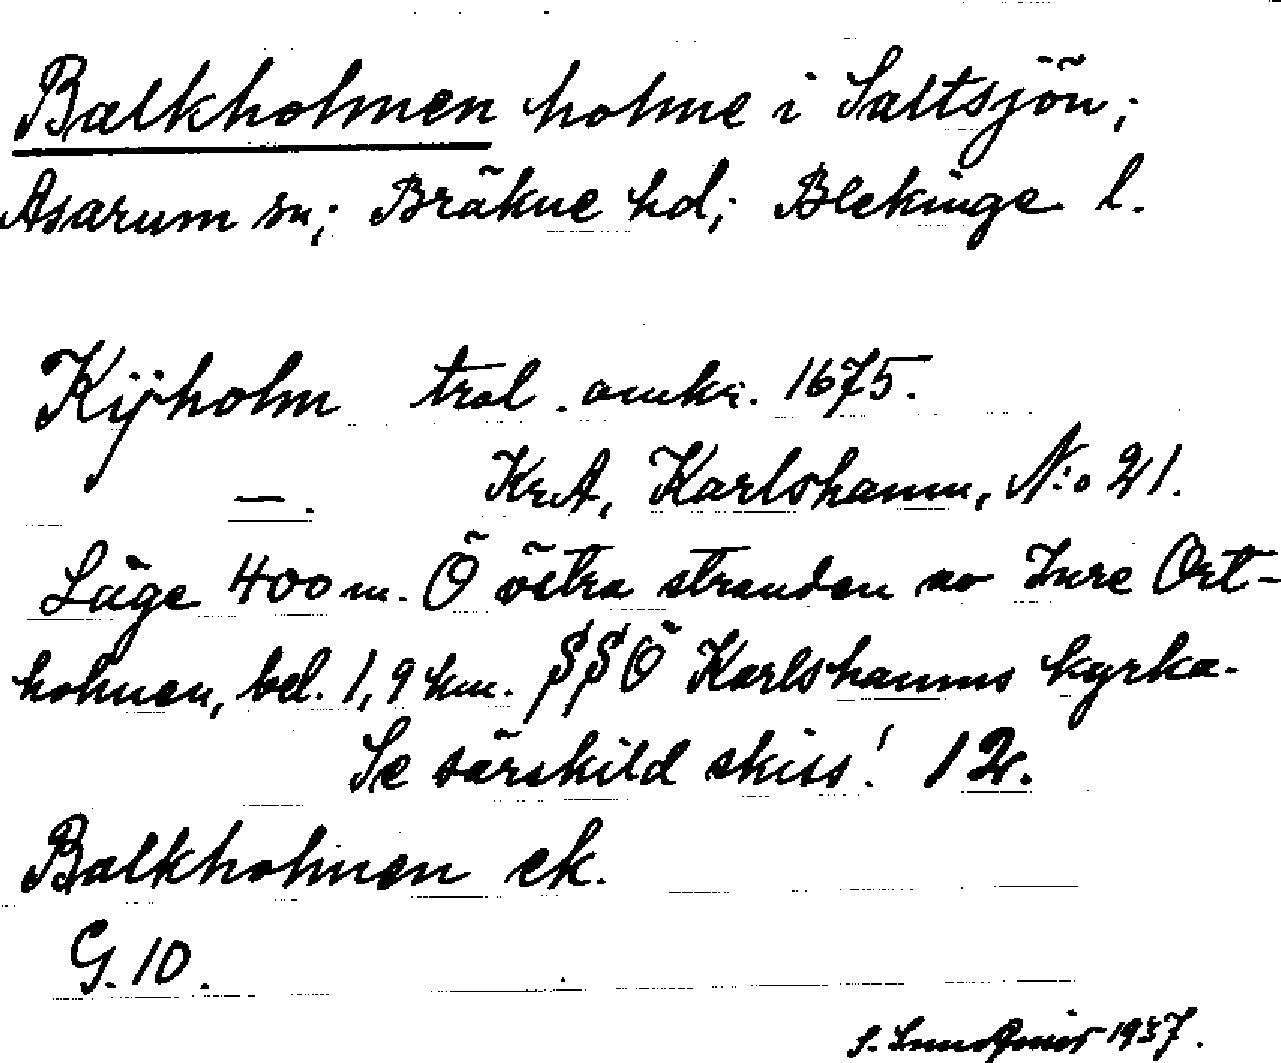 Balkholmen holme i Saltsjön;
Asarum sn; Bräkne hd; Blekinge l.
Kijholm trol. omkr. 1675.
— . KrA, Karlshamn, N:o 21.
Läge 400 m. Ö östra stranden av Inre Ort-
holmen, bel. 1,9 km. SSÖ Karlshamns kyrka.
Se särskild skiss! 12.
Balkholmen ek.
G. 10.
S. 1937.